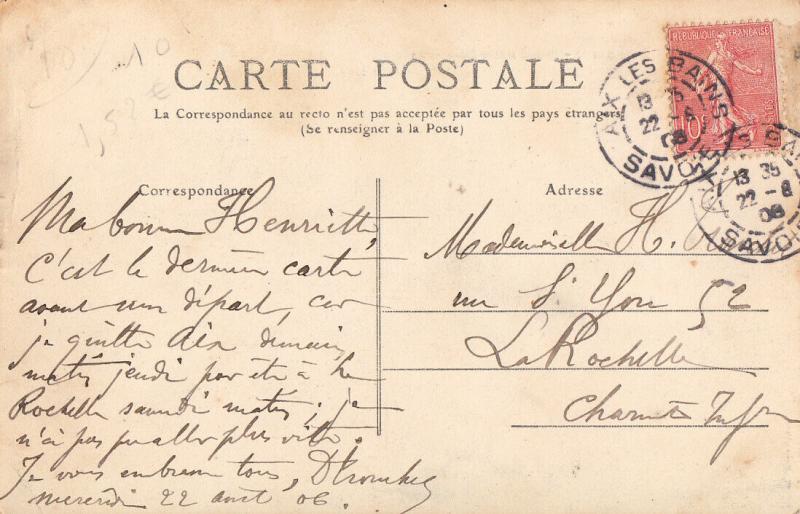 10
1,52 €
CARTE POSTALE
La Correspondance au recto n'est pas acceptée par tous les pays étrangers
(Se renseigner à la Poste)
RÉPUBLIQUE FRANÇAISE
10c
AIX LES BAINS
13 35
22 - 8
06
SAVOIE
13 35
22 - 8
06
SAVOIE
Correspondance
Ma bonne Henriette,
C'est la dernière carte
avant mon départ, car
je quitte Aix demain
matin jeudi pour être à La
Rochelle samedi matin ; je
n'ai pas pu aller plus vite.
Je vous embrasse tous,
mercredi 22 août 06.
Adresse
Mademoiselle H.
rue St Yon 52
La Rochelle
Charente Infre